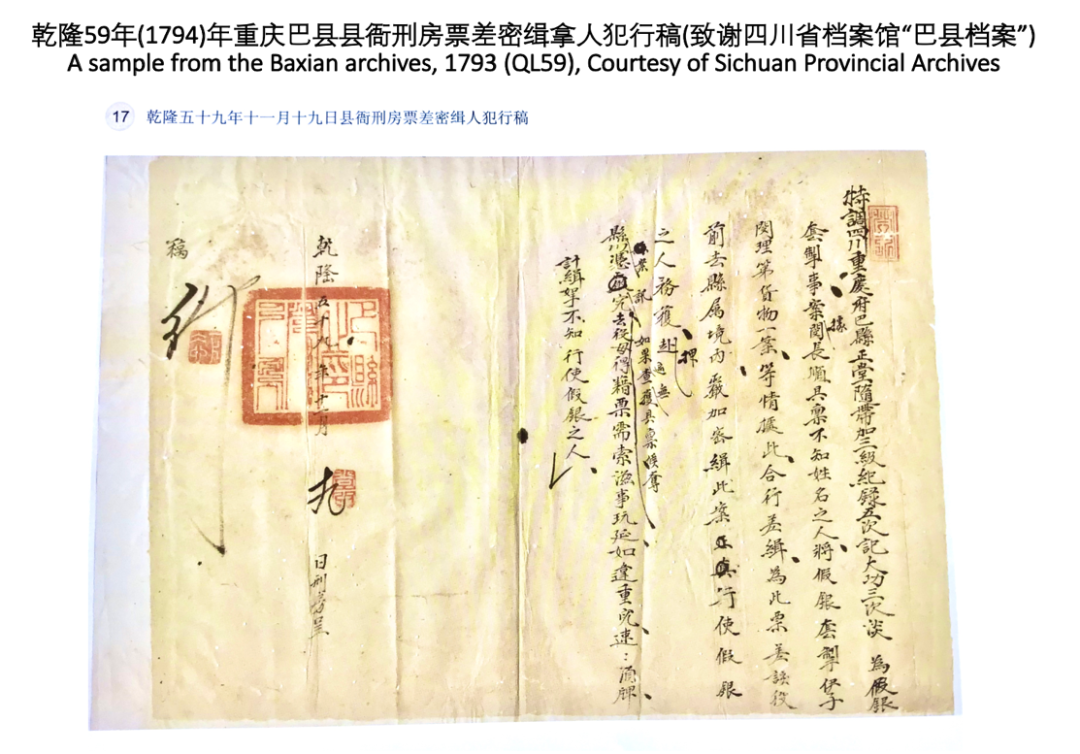 乾隆59年(1794)年重庆巴县县衙刑房票差密缉拿人犯行稿(致谢四川省档案馆“巴县档案”)
A sample from the Baxian archives, 1793 (QL59), Courtesy of Sichuan Provincial Archives
17 乾隆五十九年十一月十九日县衙刑房票差密缉人犯行稿
特調四川重慶府巴縣正堂隨帶加三級紀錄五次記大功三次 為假銀
套掣事案據閔長順具稟不知姓名之人將假銀套掣伊子
閔理第貨物一案等情據此合行差緝為此票差該役
前去縣属境内嚴加密緝此案 行使假銀
之人務獲
如果查獲具稟候奪
縣以憑 究去役毋得藉票需索滋事玩延如違重究速:
計緝拿不知 行使假銀之人
乾隆五十九年十一月
日刑房呈
稿
行